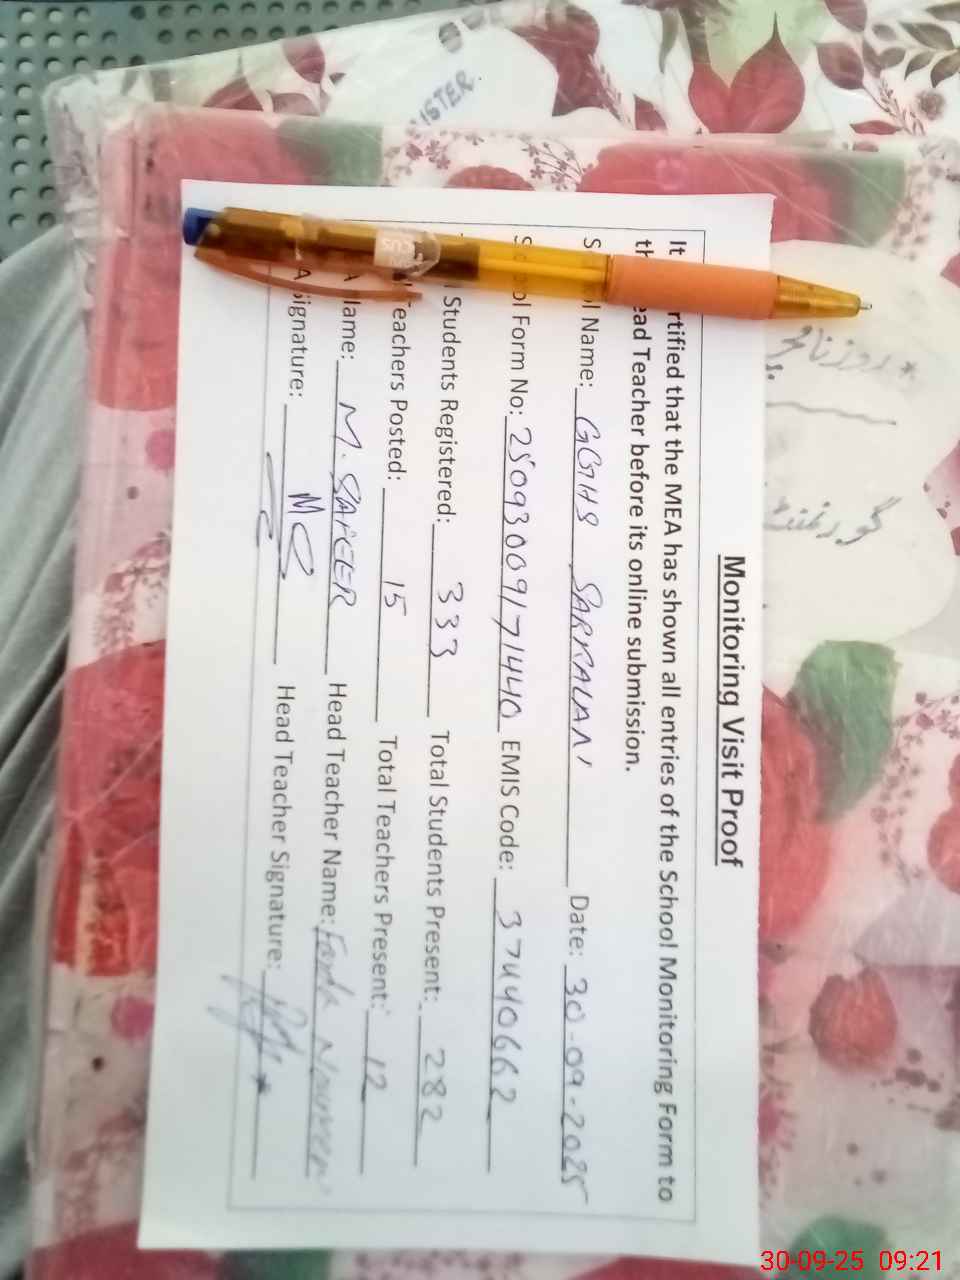 Monitoring Visit Proof
It rtified that the MEA has shown all entries of the School Monitoring Form to
th ead Teacher before its online submission.
S ol Name: GGHS Date: 30-09-2025
S ool Form No: 25093009171440 EMIS Code: 37440662
Students Registered: 333 Total Students Present: 282
Teachers Posted: 15 Total Teachers Present: 12
A Name: M. SAFEER Head Teacher Name:
A Signature: Head Teacher Signature:
روزنامچہ
گورنمنٹ
ISTER
30-09-25 09:21